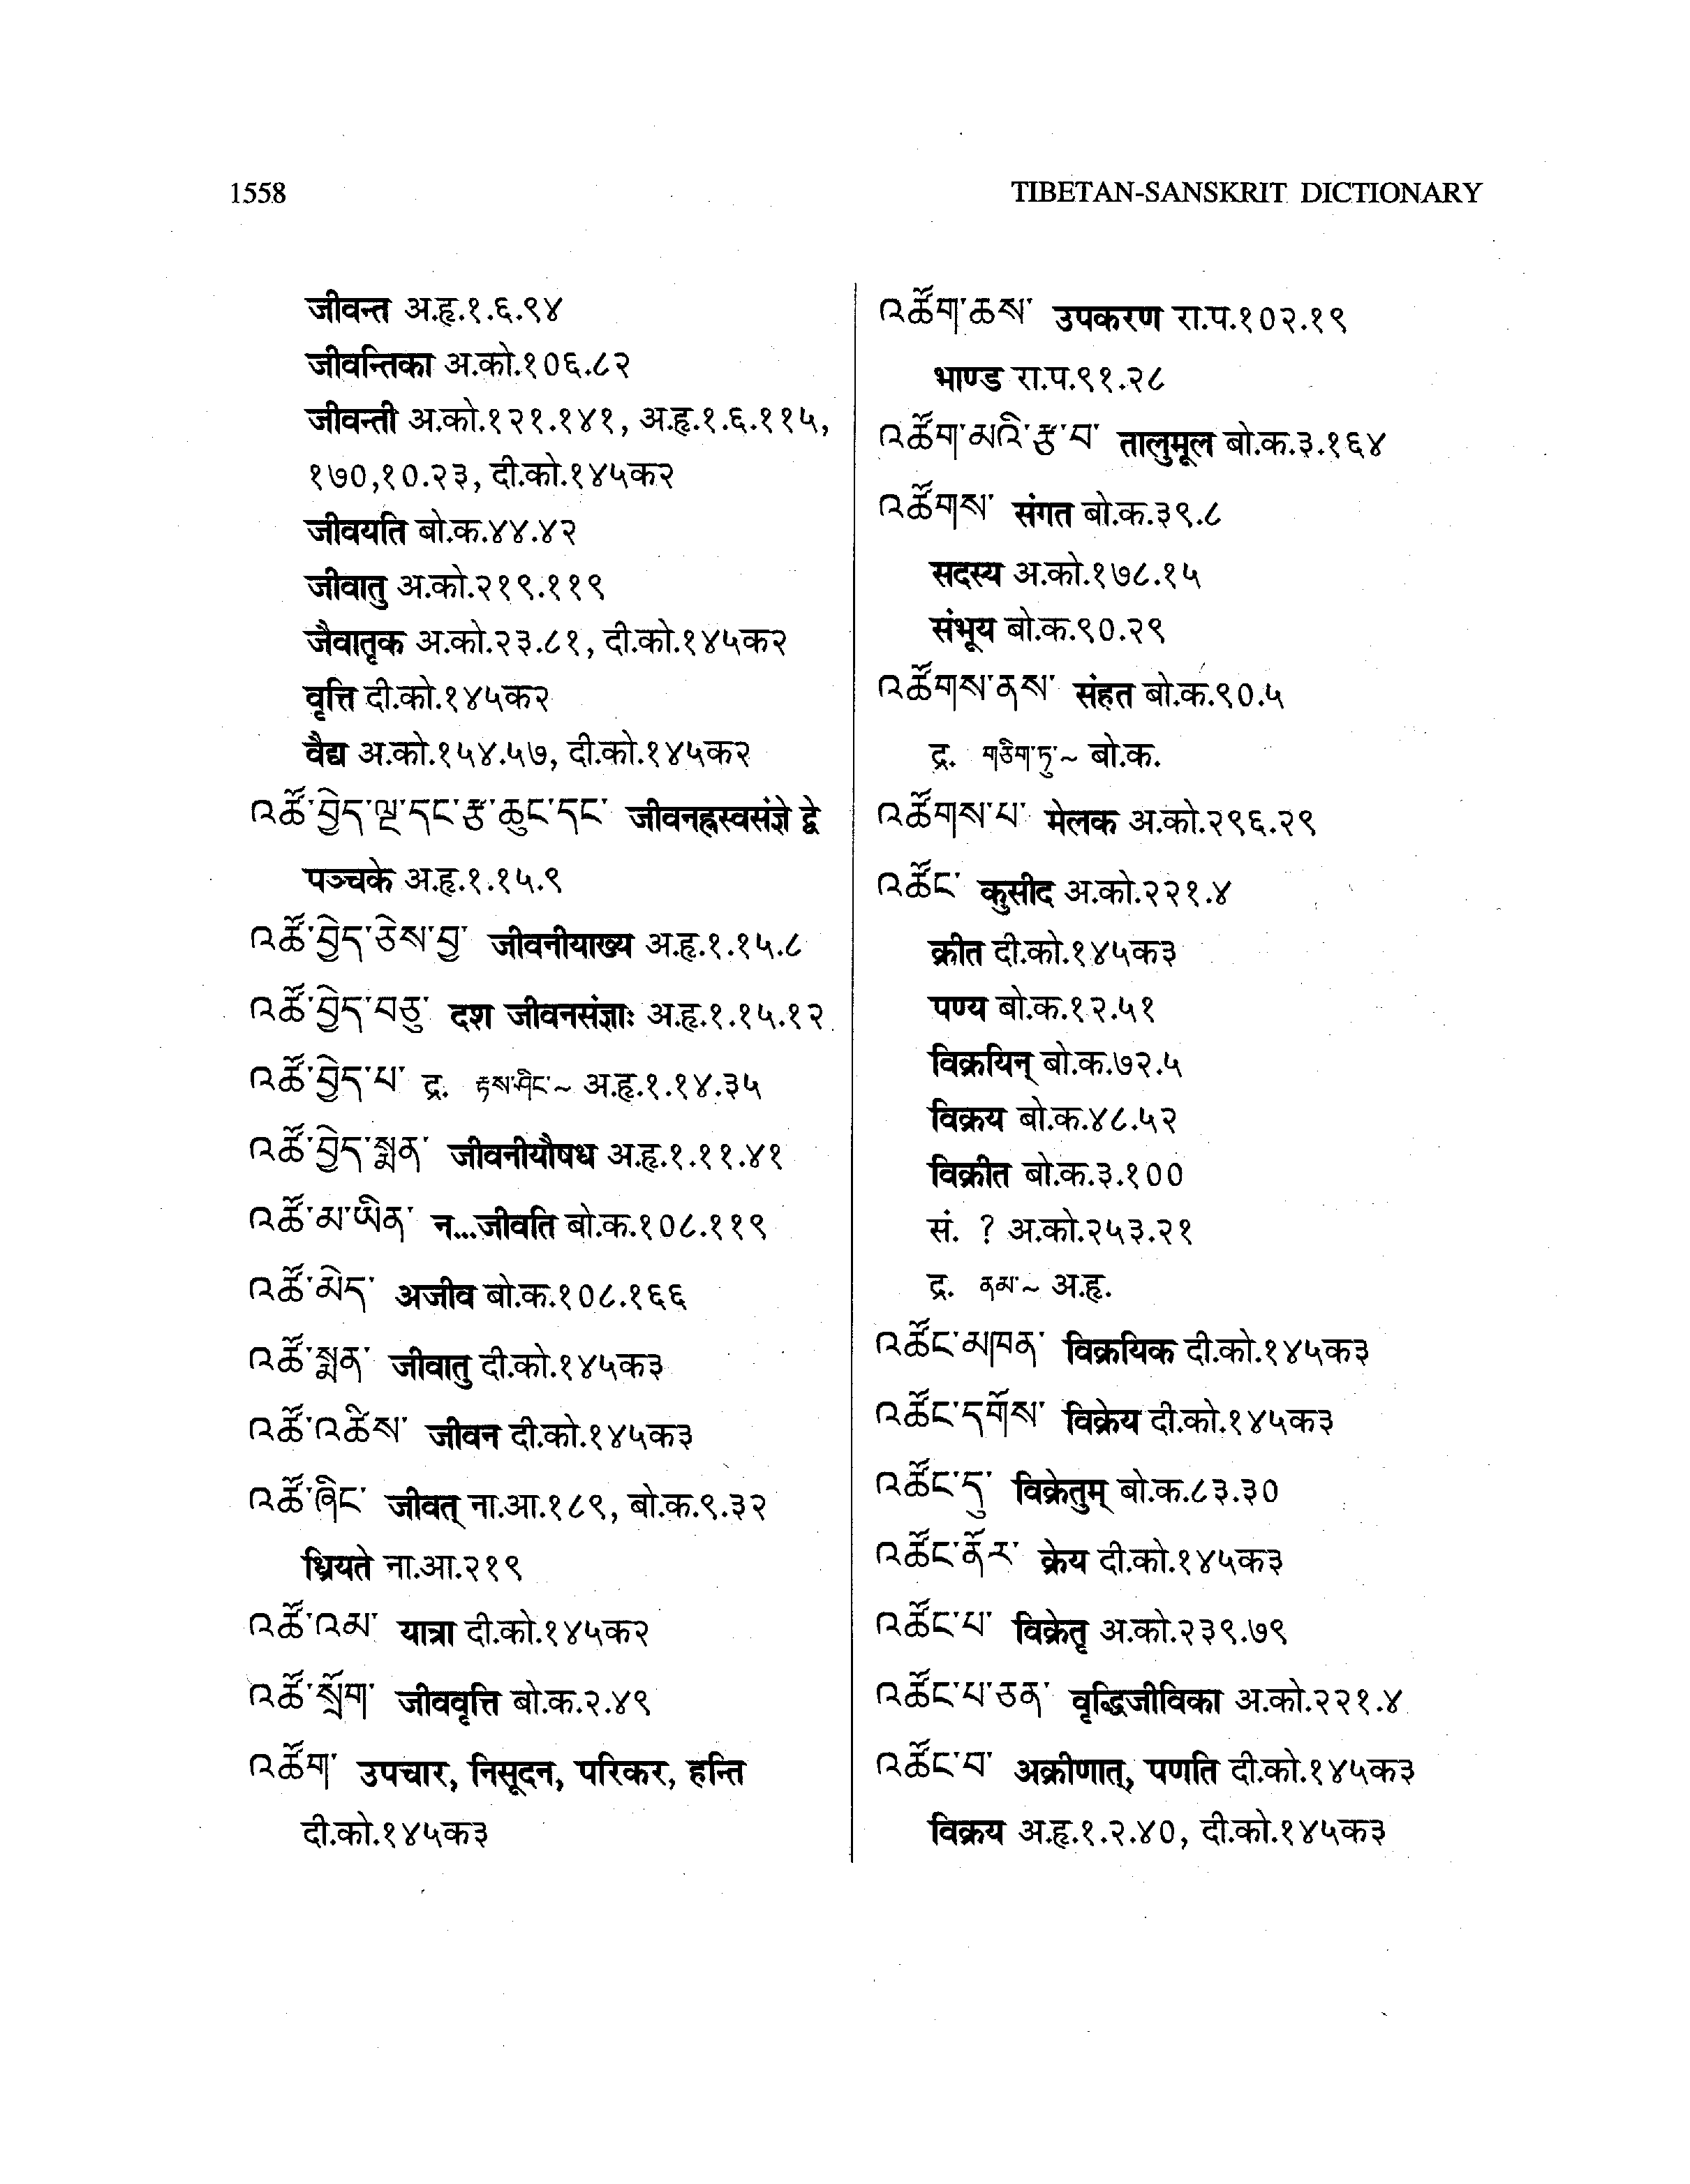 1558
TIBETAN-SANSKRIT DICTIONARY
जीवन्त अ.हृ.१.६.९४
जीवन्तिका अ.को.१०६.८२
जीवन्ती अ.को.१२१.१४१, अ.हृ.१.६.११५,
१७०,१०.२३, दी.को.१४५क२
जीवयति बो.क.४४.४२
जीवातु अ.को.२१९.११९
जैवातृक अ.को.२३.८१, दी.को.१४५क२
वृत्ति दी.को.१४५क२
वैद्य अ.को.१५४.५७, दी.को.१४५क२
འཚོ་བྱེད་ལྔ་དང་རྩ་ཆུང་དང་ जीवनह्रस्वसंज्ञे द्वे
पञ्चके अ.हृ.१.१५.९
འཚོ་བྱེད་ཅེས་བྱ་ जीवनीयाख्य अ.हृ.१.१५.८
འཚོ་བྱེད་བཅུ་ दश जीवनसंज्ञाः अ.हृ.१.१५.१२
འཚོ་བྱེད་པ་ द्र. རྟས་ཤིང་~ अ.हृ.१.१४.३५
འཚོ་བྱེད་སྨན་ जीवनीयौषध अ.हृ.१.११.४१
འཚོ་མ་ཡིན་ न...जीवति बो.क.१०८.११९
འཚོ་མེད་ अजीव बो.क.१०८.१६६
འཚོ་སྨན་ जीवातु दी.को.१४५क३
འཚོ་འཚིས་ जीवन दी.को.१४५क३
འཚོ་ཞིང་ जीवत् ना.आ.१८९, बो.क.९.३२
ध्रियते ना.आ.२१९
འཚོ་འམ་ यात्रा दी.को.१४५क२
འཚོ་སྲོག་ जीववृत्ति बो.क.२.४९
འཚོག་ उपचार, निसूदन, परिकर, हन्ति
दी.को.१४५क३
འཚོག་ཆས་ उपकरण रा.प.१०२.१९
भाण्ड रा.प.९१.२८
འཚོག་མའི་རྩ་བ་ तालुमूल बो.क.३.१६४
འཚོགས་ संगत बो.क.३९.८
सदस्य अ.को.१७८.१५
संभूय बो.क.९०.२९
འཚོགས་ནས་ संहत बो.क.९०.५
द्र. གཅིག་ཏུ་~ बो.क.
འཚོགས་པ་ मेलक अ.को.२९६.२९
འཚོང་ कुसीद अ.को.२२१.४
क्रीत दी.को.१४५क३
पण्य बो.क.१२.५१
विक्रयिन् बो.क.७२.५
विक्रय बो.क.४८.५२
विक्रीत बो.क.३.१००
सं. ? अ.को.२५३.२१
द्र. ནམ་~ अ.हृ.
འཚོང་མཁན་ विक्रयिक दी.को.१४५क३
འཚོང་དགོས་ विक्रेय दी.को.१४५क३
འཚོང་དུ་ विक्रेतुम् बो.क.८३.३०
འཚོང་ནོར་ क्रेय दी.को.१४५क३
འཚོང་པ་ विक्रेतृ अ.को.२३९.७९
འཚོང་པ་ཅན་ वृद्धिजीविका अ.को.२२१.४
འཚོང་བ་ अक्रीणात्, पणति दी.को.१४५क३
विक्रय अ.हृ.१.२.४०, दी.को.१४५क३